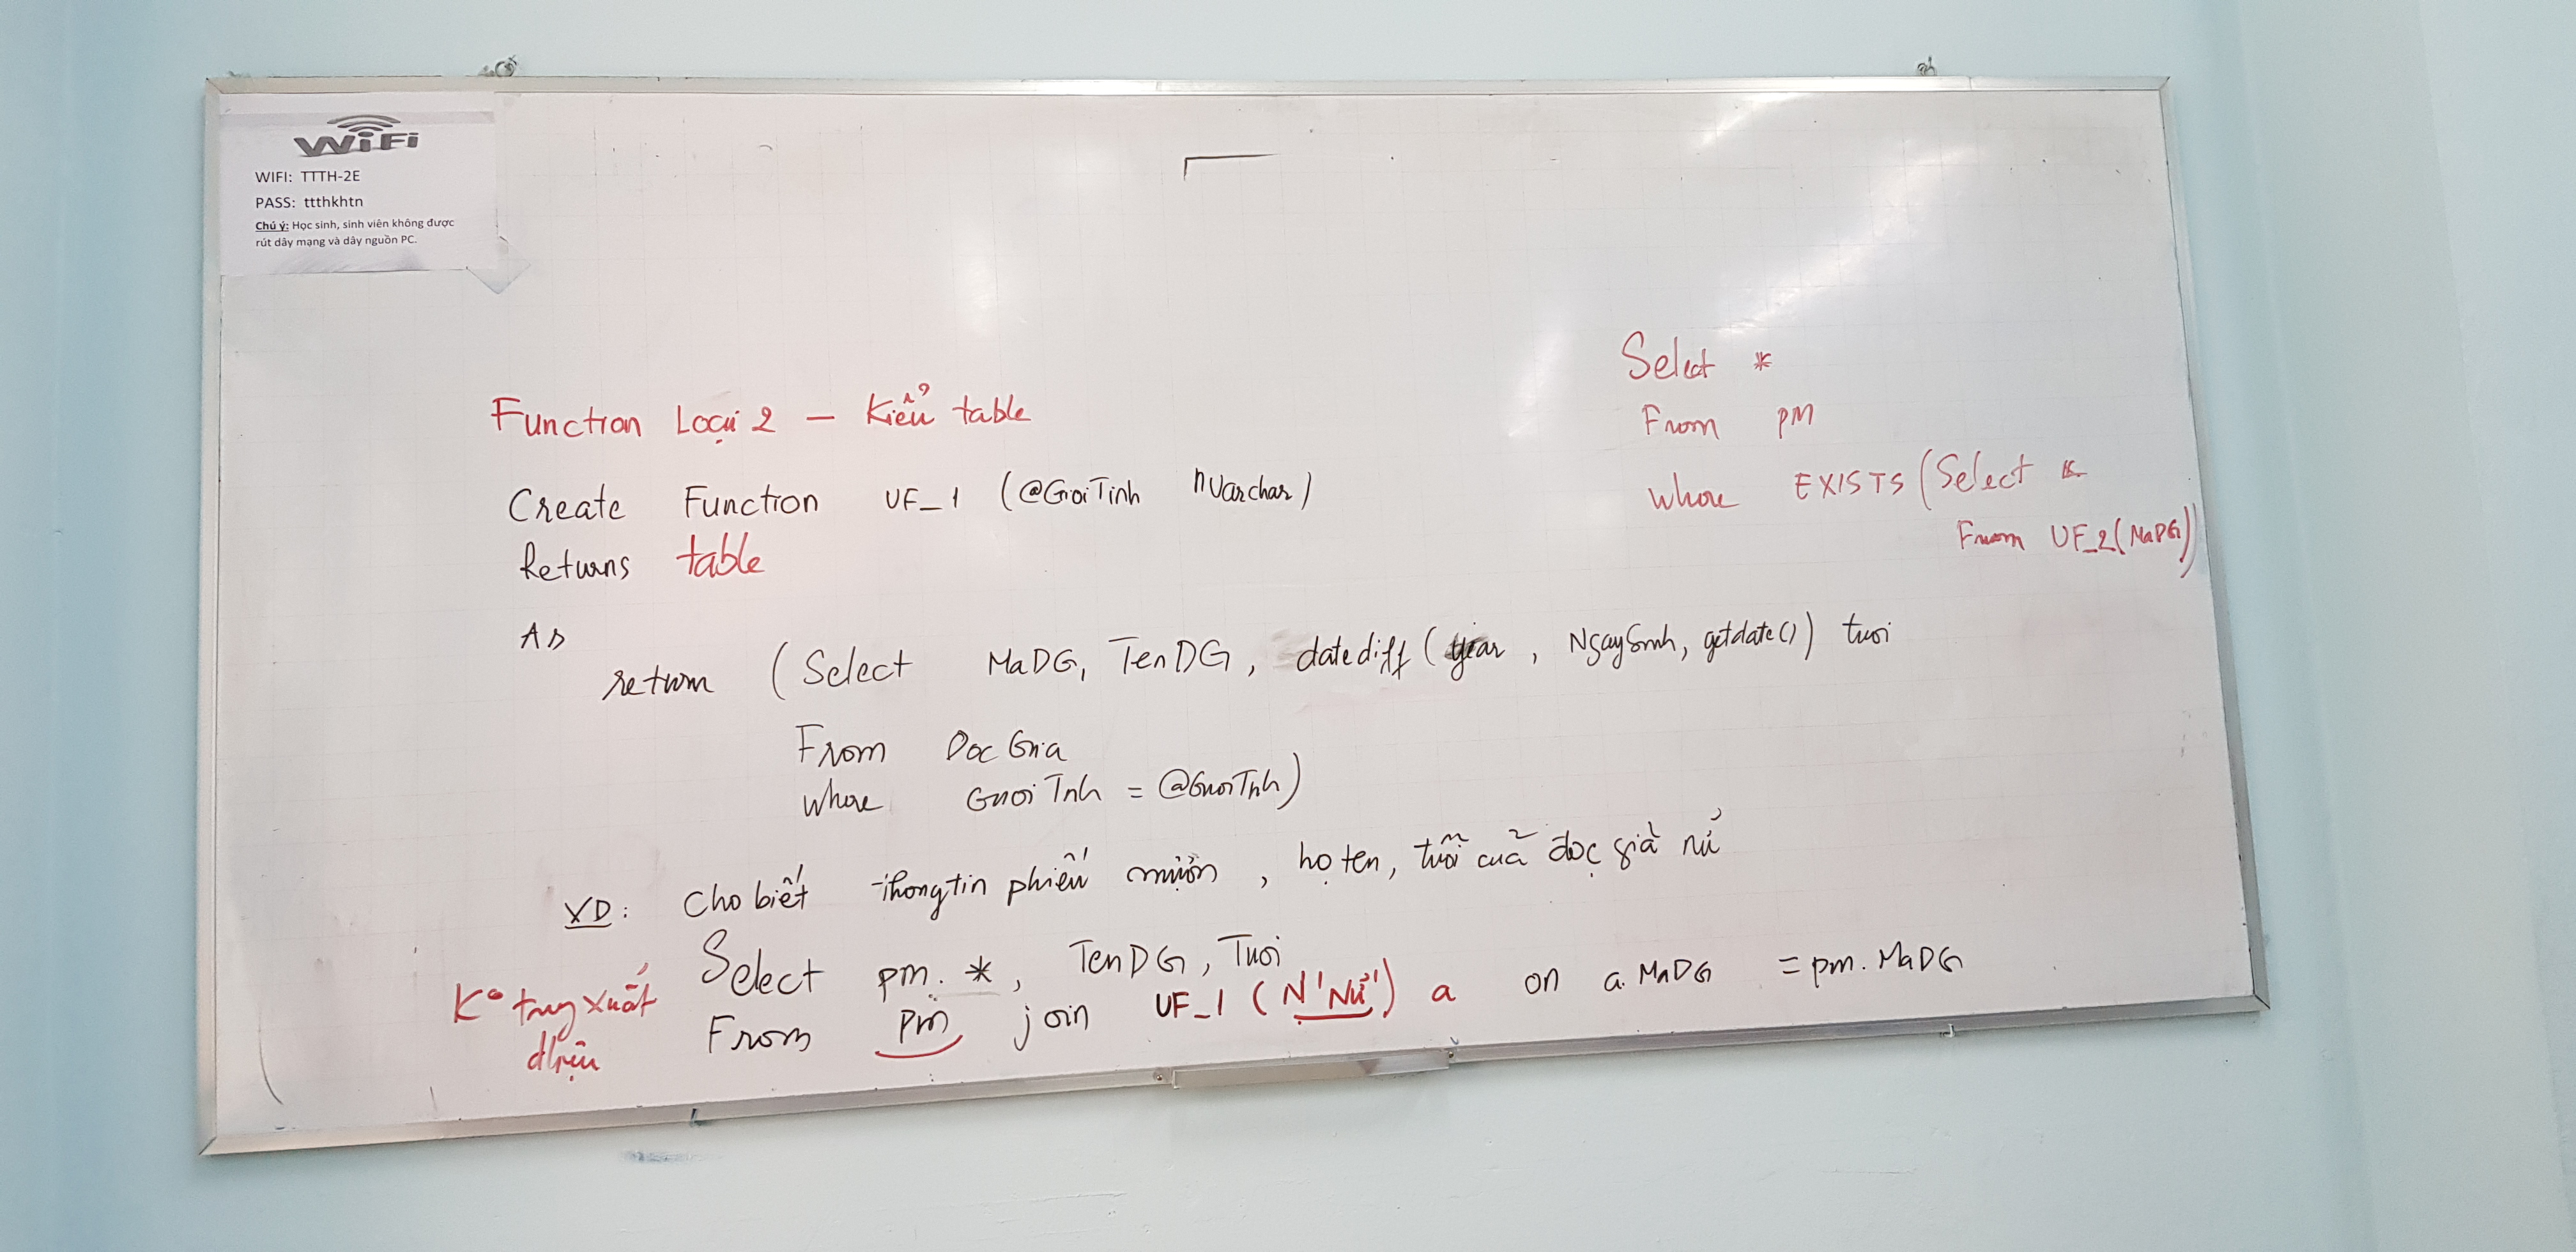 WiFi
WIFI: TTTH-2E
PASS: ttthkhtn
Chú ý: Học sinh, sinh viên không được
rút dây mạng và dây nguồn PC.
Function Loại 2 – Kiểu table
Create Function UF_1 (@GioiTinh nVarchar)
Returns table
As
return (Select MaDG, TenDG, datediff (year, NgaySinh, getdate()) tuoi
From DocGia
where GioiTinh = @GioiTinh)
VD: Cho biết thongtin phiếu mượn, họ ten, tuổi của đọc giả nữ
Select pm.*, TenDG, Tuoi
From pm join UF_1 (N'Nữ') a on a.MaDG = pm.MaDG
Kº truy xuất
Select *
From PM
where EXISTS (Select *
From UF_2(MaDG))